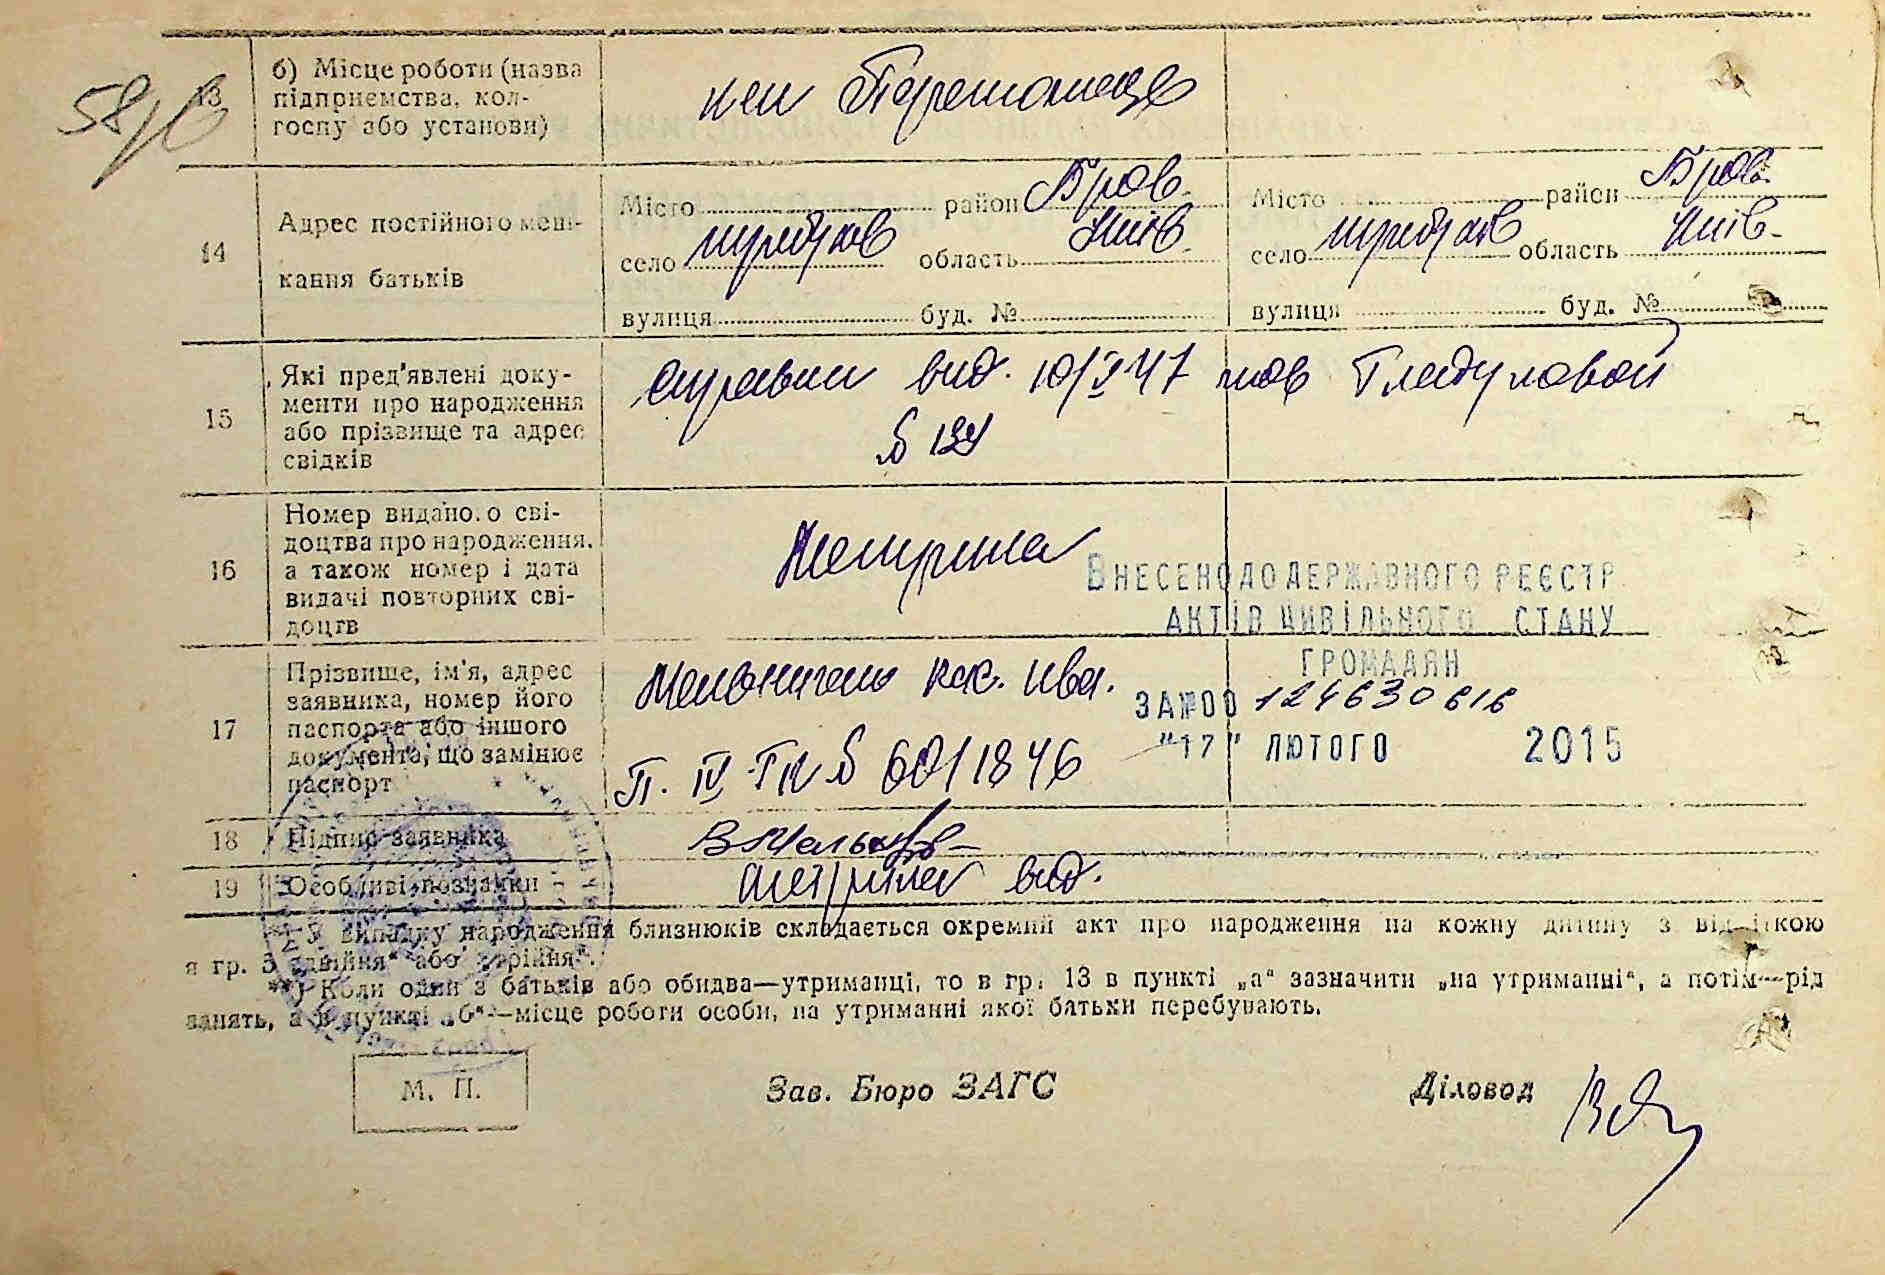 58/в
13
б) Місце роботи (назва
підприємства, кол-
госпу або установи)
14
Адрес постійного меш-
кання батьків
Місто район Бров.
село область Київ.
вулиця буд. №
Місто район Бров.
село область Київ.
вулиця буд. №
15
Які пред'явлені доку-
менти про народження
або прізвище та адрес
свідків
вид. 10/V 47
№ 134
16
Номер видано.о сві-
доцтва про народження,
а також номер і дата
видачі повторних сві-
доцтв
Метрика
Внесено до Державного реєстр
актів цивільного стану
громадян
за №00 124630616
"17" лютого 2015
17
Прізвище, ім'я, адрес
заявника, номер його
паспорта або іншого
документа, що замінює
паспорт
П. IV № 601846
18
Підпис заявника
19
Особливі познаки
вид.
У випадку народження близнюків складається окремий акт про народження на кожну дитину з відміткою
я гр. 5 „двійня“ або „трійня“.
**) Коли один з батьків або обидва—утриманці, то в гр. 13 в пункті „а“ зазначити „на утриманні“, а потім—рід
занять, а в пункті „б“—місце роботи особи, на утриманні якої батьки перебувають.
М. П.
Зав. Бюро ЗАГС
Діловод